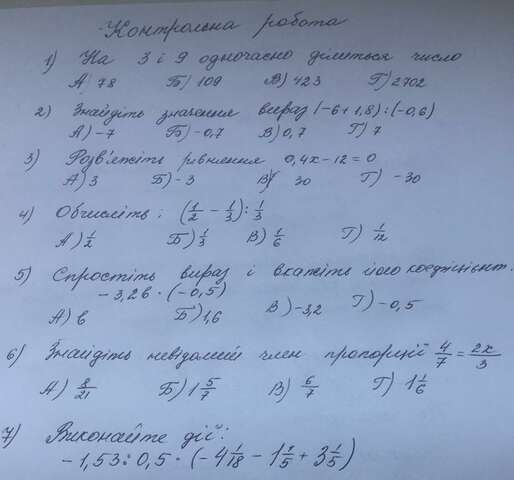 Контрольна робота
1) На 3 і 9 одночасно ділиться число
А) 78 Б) 109 В) 423 Г) 2702
2) Знайдіть значення вираз (-6+1,8):(-0,6)
А) -7 Б) -0,7 В) 0,7 Г) 7
3) Розв'яжіть рівняння 0,4x-12=0
А) 3 Б) -3 В) 30 Г) -30
4) Обчисліть: (1/2 - 1/3) : 1/3
А) 1/2 Б) 1/3 В) 1/6 Г) 1/12
5) Спростіть вираз і вкажіть його коефіцієнт.
-3,2в · (-0,5)
А) в Б) 1,6 В) -3,2 Г) -0,5
6) Знайдіть невідомий член пропорції 4/7 = 2x/3
А) 8/21 Б) 1 5/7 В) 6/7 Г) 1 1/6
7) Виконайте дії:
-1,53 : 0,5 · (-4 1/18 - 1 1/5 + 3 1/5)